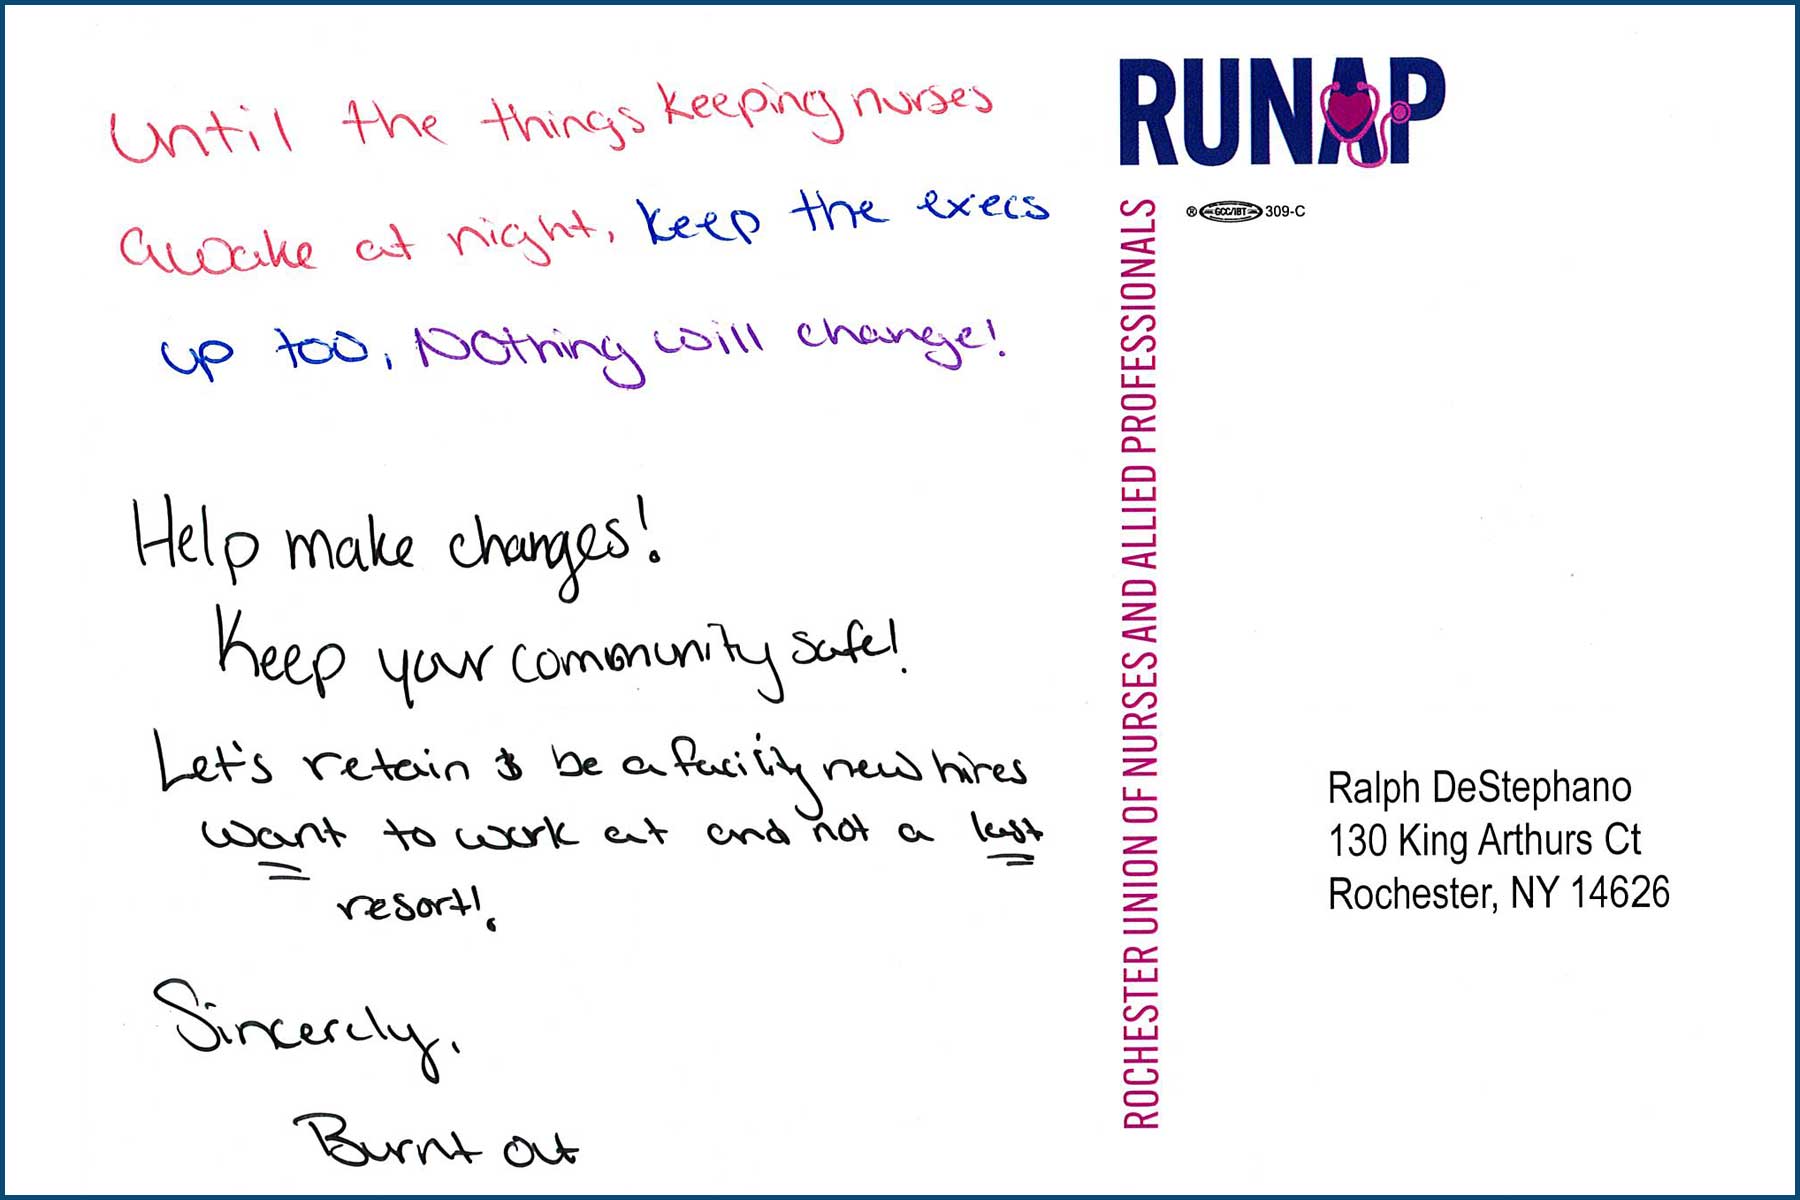 Until the things keeping nurses
awake at night, keep the execs
up too, Nothing will change!
Help make changes!
Keep your community safe!
Let's retain & be a facility new hires
want to work at and not a last
resort!.
Sincerely,
Burnt out
RUNAP
® GCC/IBT 309-C
ROCHESTER UNION OF NURSES AND ALLIED PROFESSIONALS
Ralph DeStephano
130 King Arthurs Ct
Rochester, NY 14626